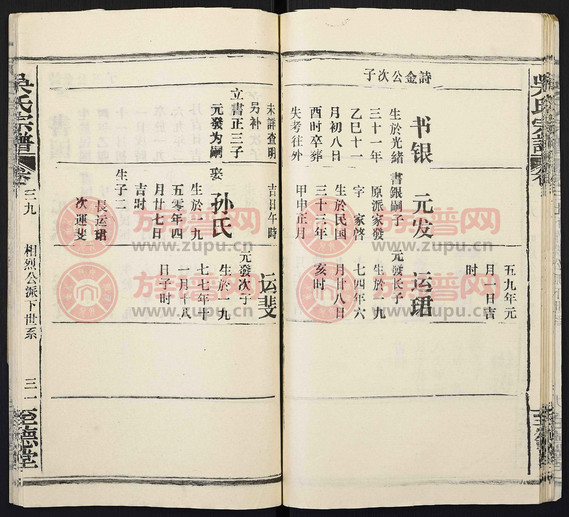 詩金公次子
书银
生於光緒
三十一年
乙巳十一
月初八日
酉时卒葬
失考往外
未詳查明
另补
立書正三子
元發为嗣
元发
書銀嗣子
原派家發
字家啓
生於民国
三十三年
甲申正月
吉日午時
娶
孙氏
生於一九
五零年四
月廿七日
吉时
生子二
長运珺
次運斐
运珺
元發长子
生於一九
七四年六
月廿八日
亥时
元發次子
运斐
生於一九
七七年十
一月十八
日子时
五九年元
月一日吉
时
吳氏宗譜
卷三九
相烈公派下世系
三一
至德堂
族谱网
www.zupu.cn
族谱网
www.zupu.cn